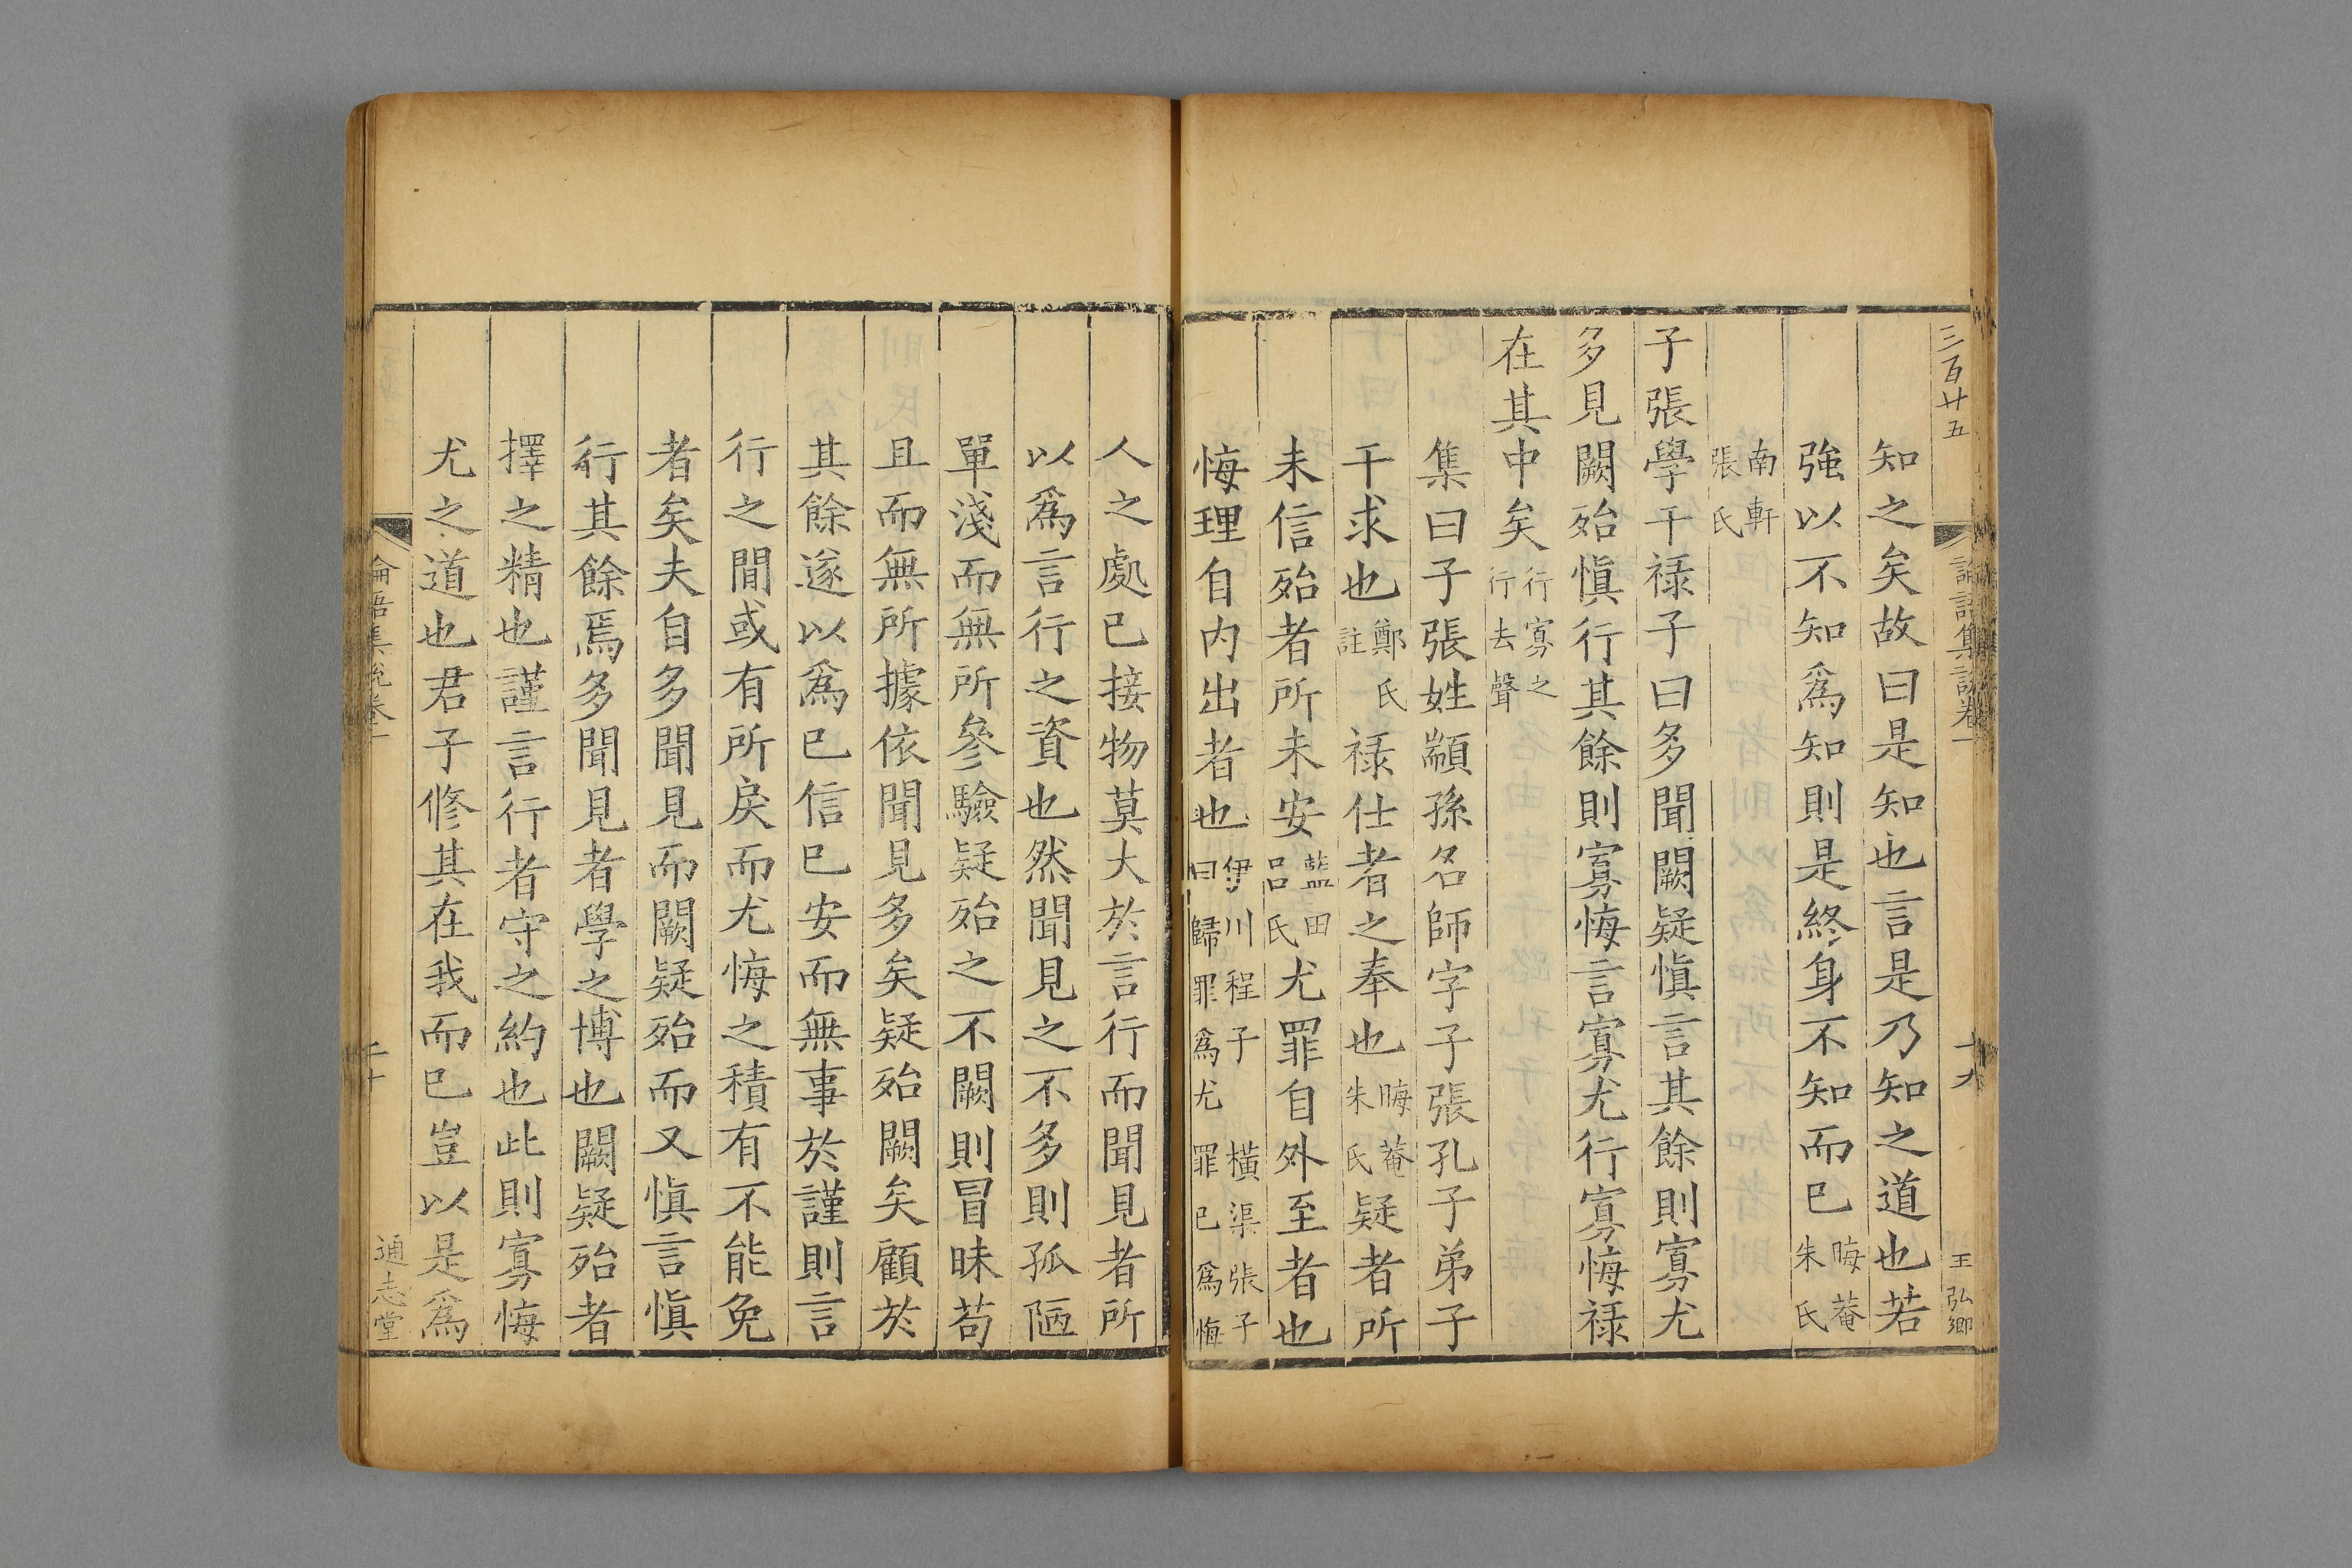 三百廿五
論語集說卷一
十九
王弘卿
知之矣故曰是知也言是乃知之道也若
強以不知爲知則是終身不知而已晦菴朱氏
南軒張氏
子張學干祿子曰多聞闕疑愼言其餘則寡尤
多見闕殆愼行其餘則寡悔言寡尤行寡悔祿
在其中矣行寡之行去聲
集曰子張姓顓孫名師字子張孔子弟子
干求也鄭氏註祿仕者之奉也晦菴朱氏疑者所
未信殆者所未安藍田呂氏尤罪自外至者也
悔理自内出者也伊川程子曰歸罪爲尤橫渠張子罪已爲悔
人之處已接物莫大於言行而聞見者所
以爲言行之資也然聞見之不多則孤陋
單淺而無所參驗疑殆之不闕則冒昧苟
且而無所據依聞見多矣疑殆闕矣顧於
其餘遂以爲已信已安而無事於謹則言
行之間或有所戾而尤悔之積有不能免
者矣夫自多聞見而闕疑殆而又愼言愼
行其餘焉多聞見者學之博也闕疑殆者
擇之精也謹言行者守之約也此則寡悔
尤之道也君子修其在我而已豈以是爲
論語集說卷一
二十
通志堂